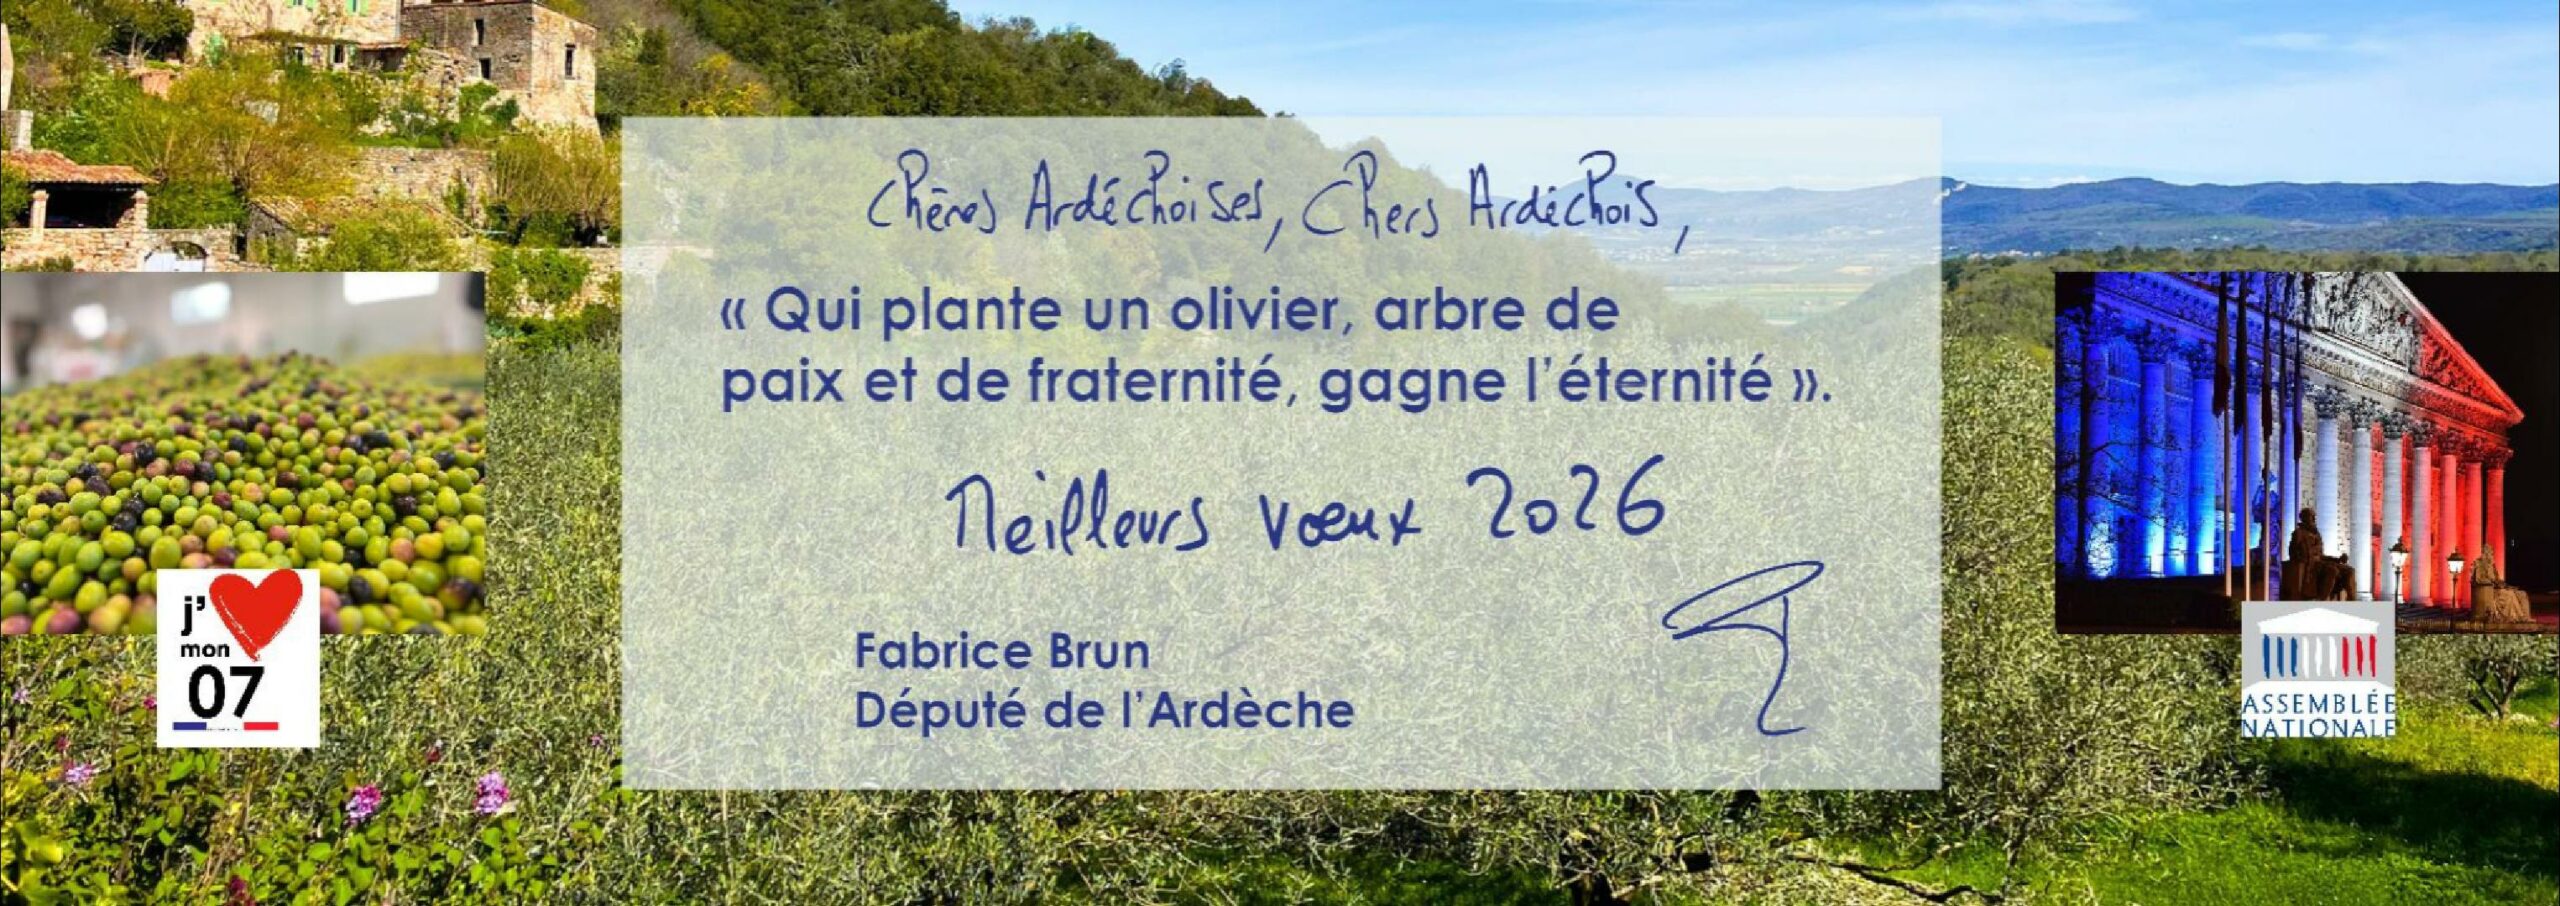 Chères Ardéchoises, Chers Ardéchois,
« Qui plante un olivier, arbre de
paix et de fraternité, gagne l'éternité ».
Meilleurs vœux 2026
Fabrice Brun
Député de l'Ardèche
j'
mon
07
ASSEMBLÉE
NATIONALE